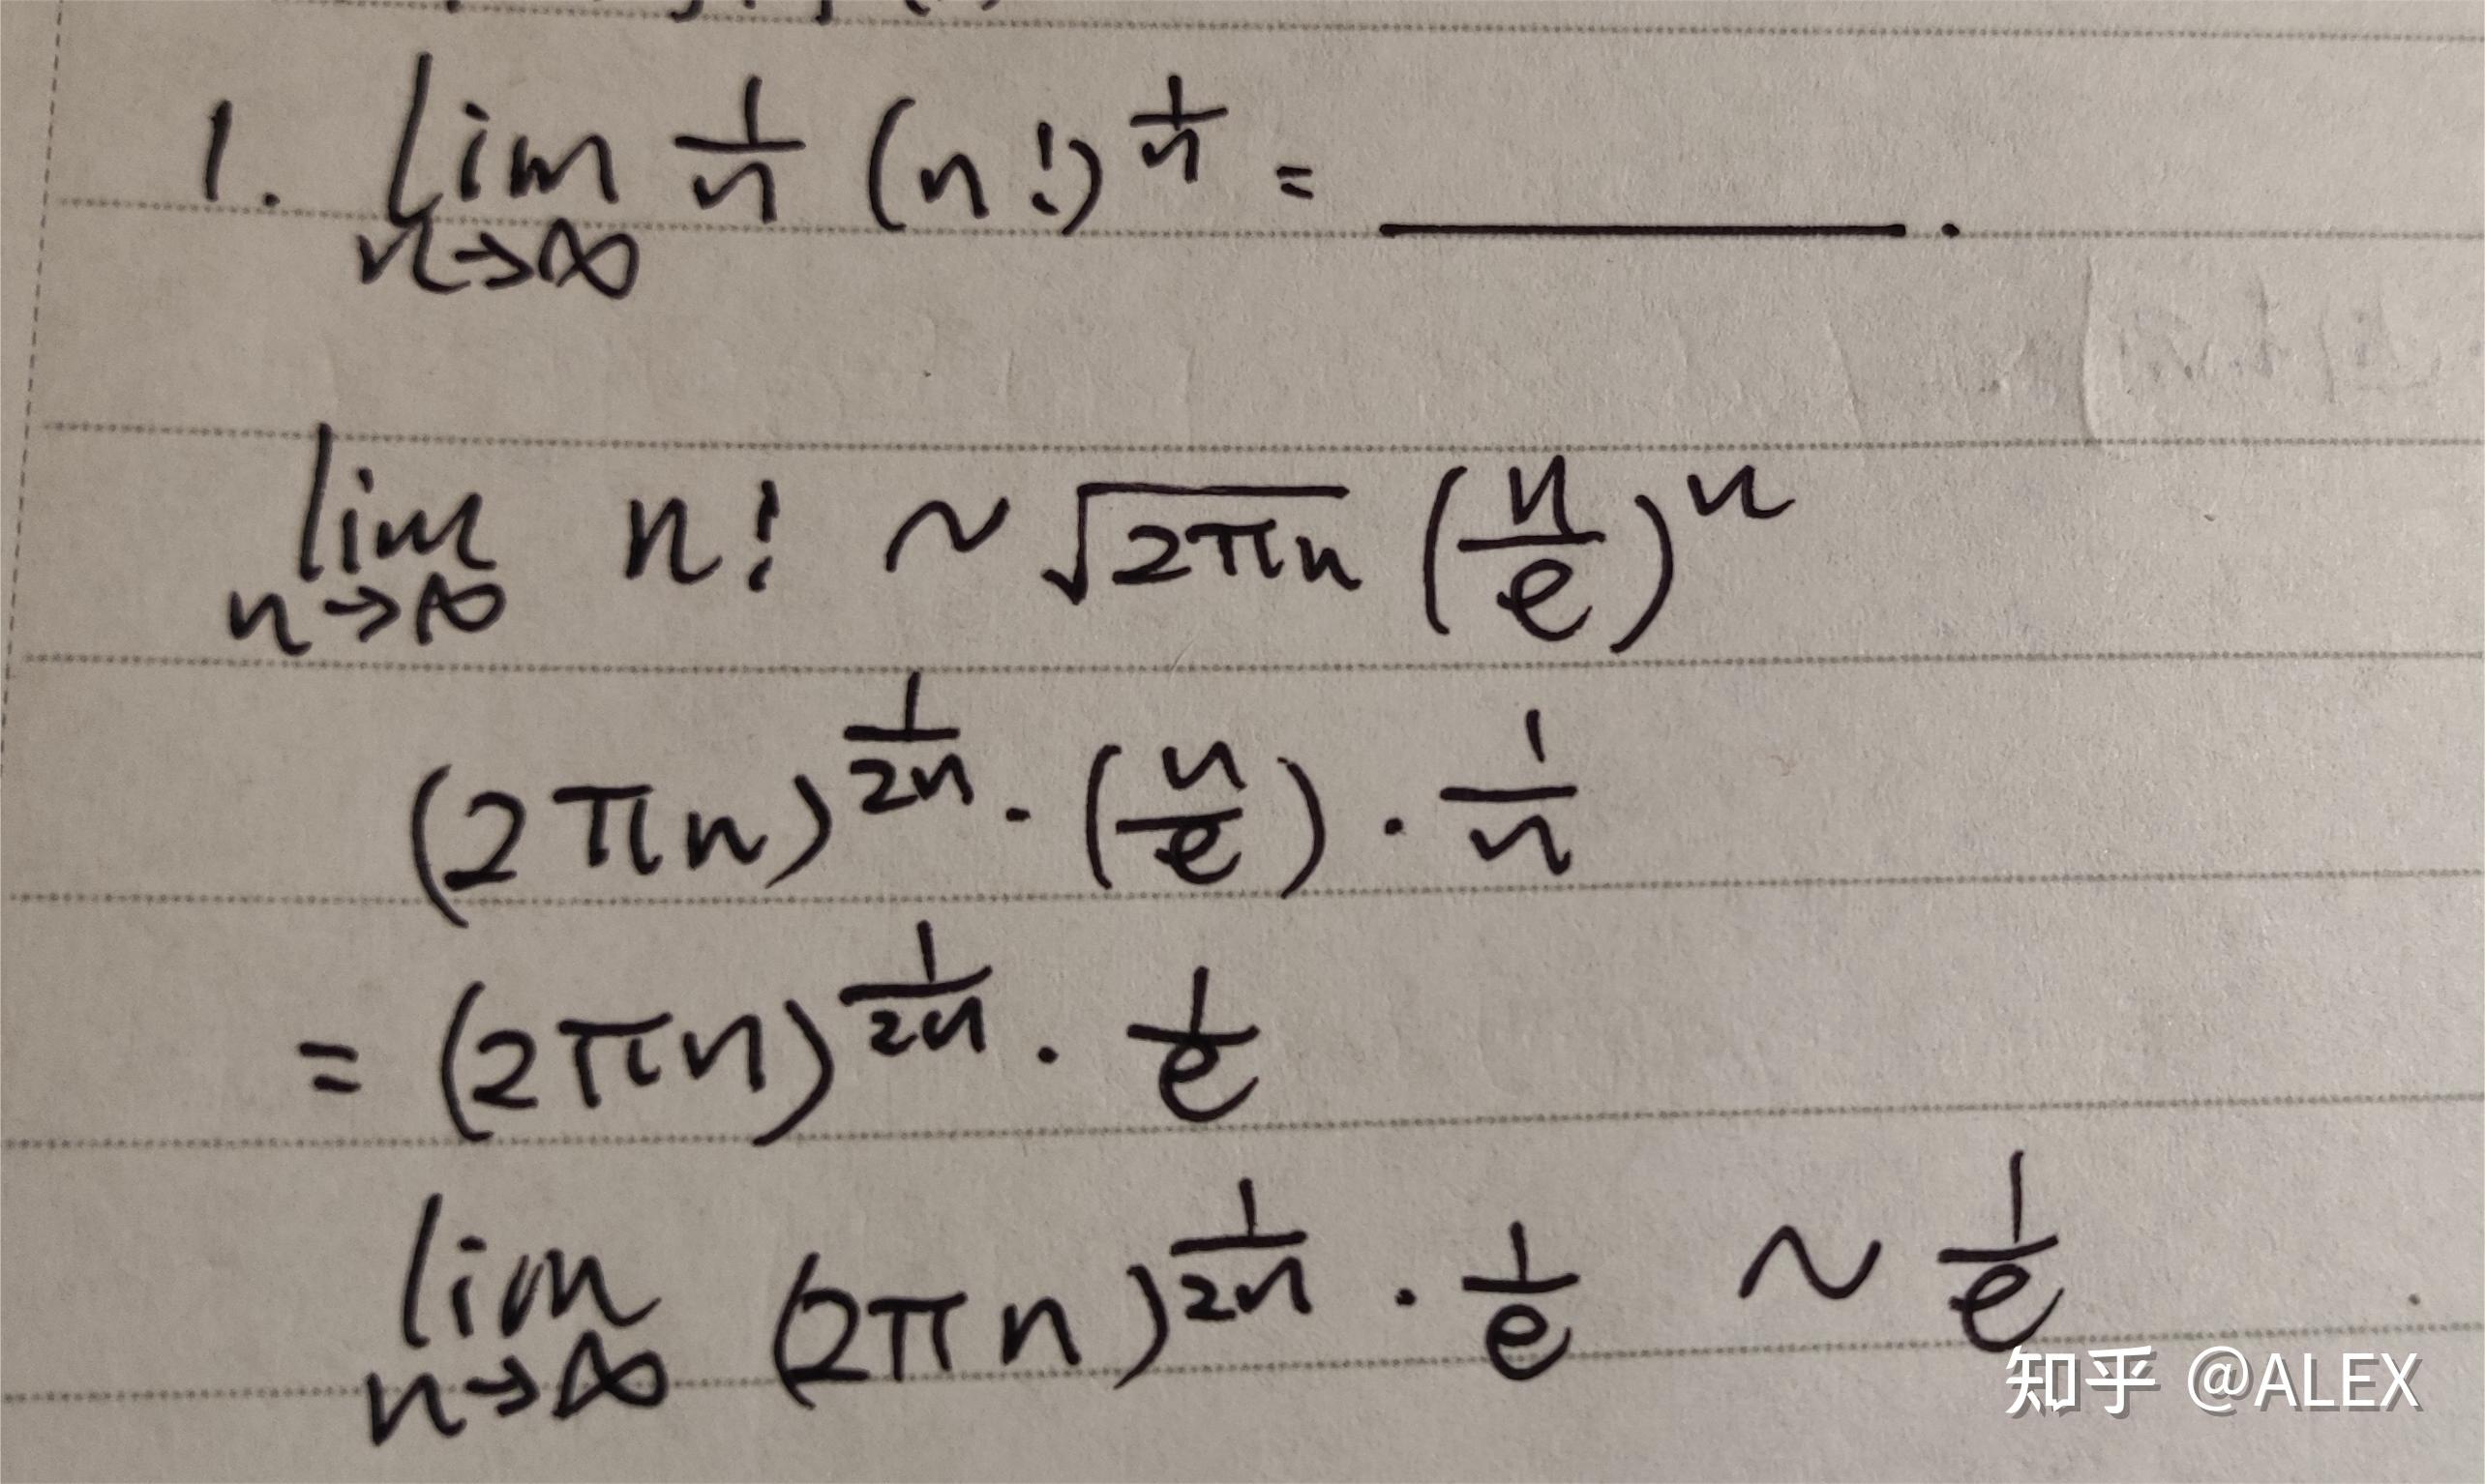 1. lim_{n→∞} \frac{1}{n} (n!)^{\frac{1}{n}} = ________ .
lim_{n→∞} n! ~ \sqrt{2πn} (\frac{n}{e})^n
(2πn)^{\frac{1}{2n}} · (\frac{n}{e}) · \frac{1}{n}
= (2πn)^{\frac{1}{2n}} · \frac{1}{e}
lim_{n→∞} (2πn)^{\frac{1}{2n}} · \frac{1}{e} ~ \frac{1}{e}
知乎 @ALEX